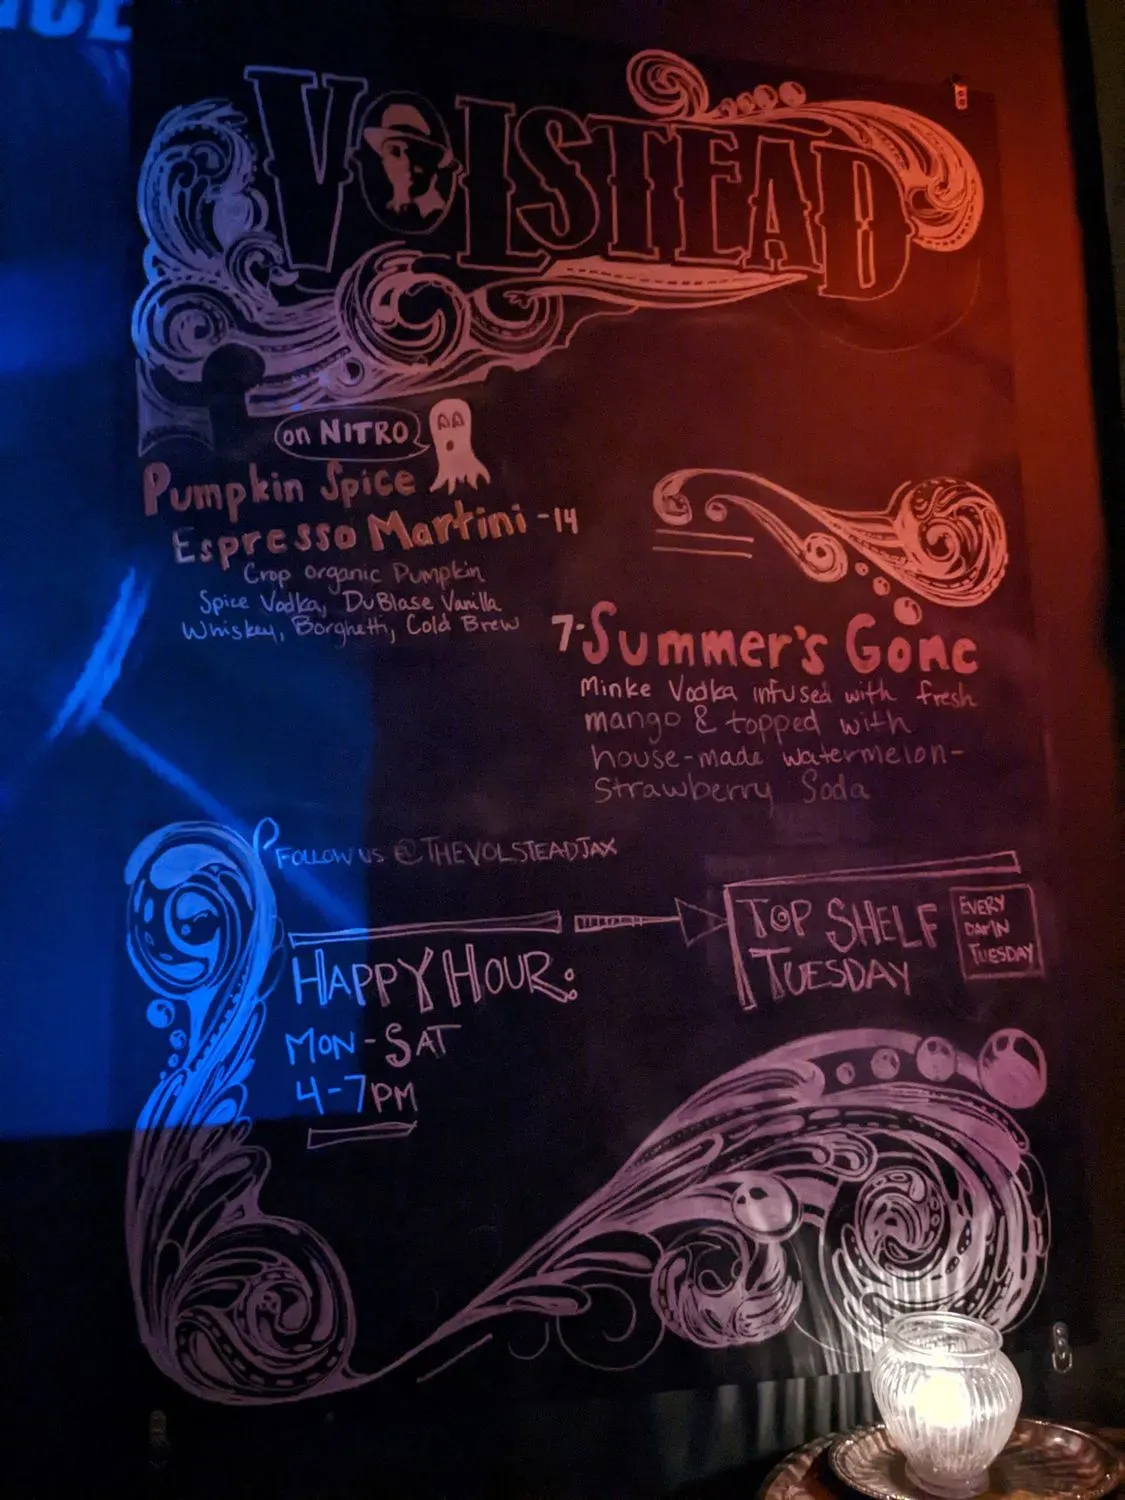 VOLSTEAD
on NITRO
Pumpkin Spice
Espresso Martini -14
Crop organic Pumpkin
Spice Vodka, DuBlase Vanilla
Whiskey, Borghetti, Cold Brew
7-Summer's Gone
Minke Vodka infused with fresh
mango & topped with
house-made watermelon-
Strawberry Soda
FOLLOW US @THEVOLSTEADJAX
HAPPY HOUR:
MON-SAT
4-7PM
TOP SHELF
TUESDAY
EVERY
DAM'N
TUESDAY